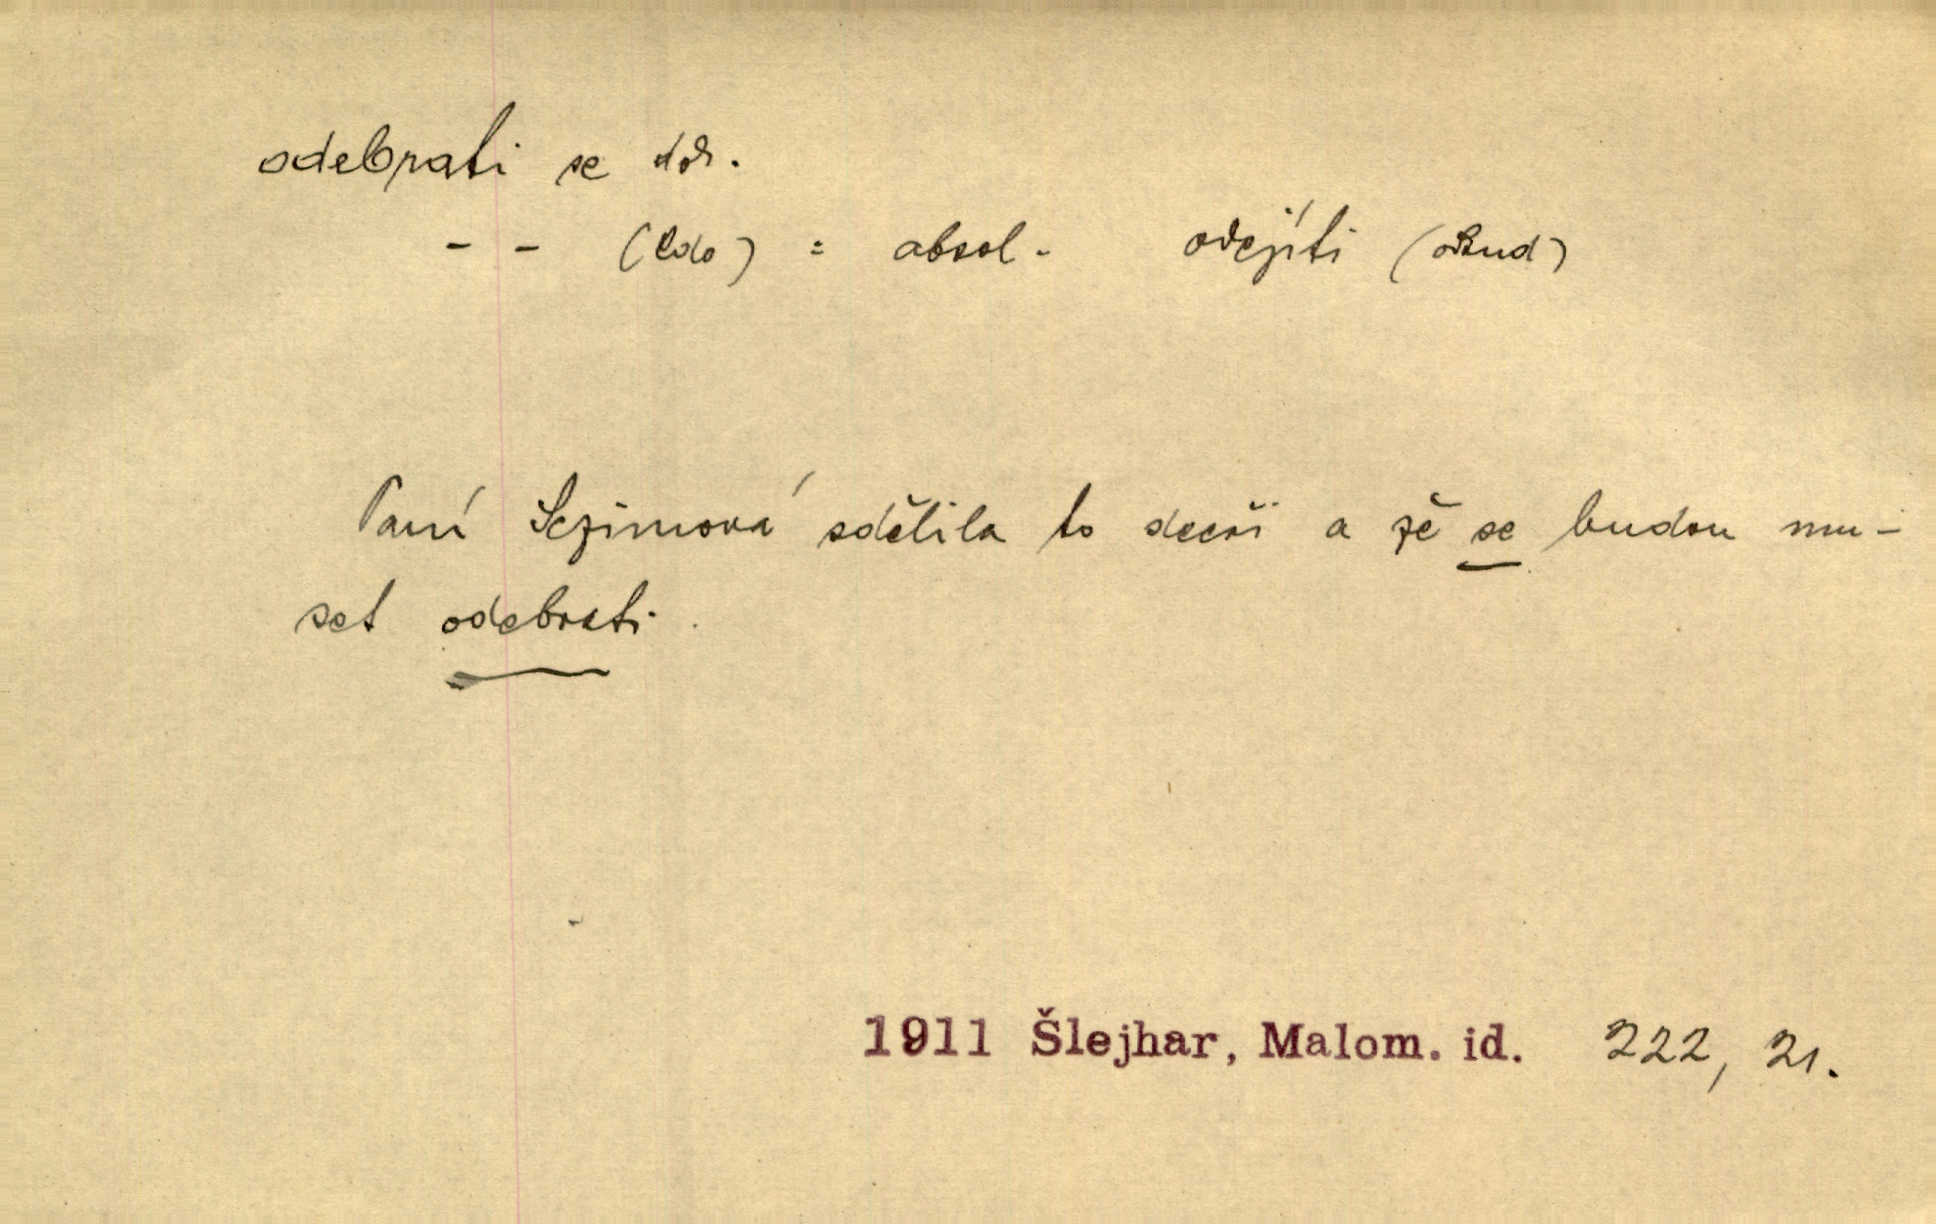 odebrati se dok.
- - (kdo) = absol. odejíti (odkud)
Paní Sezimová sdělila to dceři a že se budou mu-
set odebrati.
1911 Šlejhar, Malom. id. 222, 21.